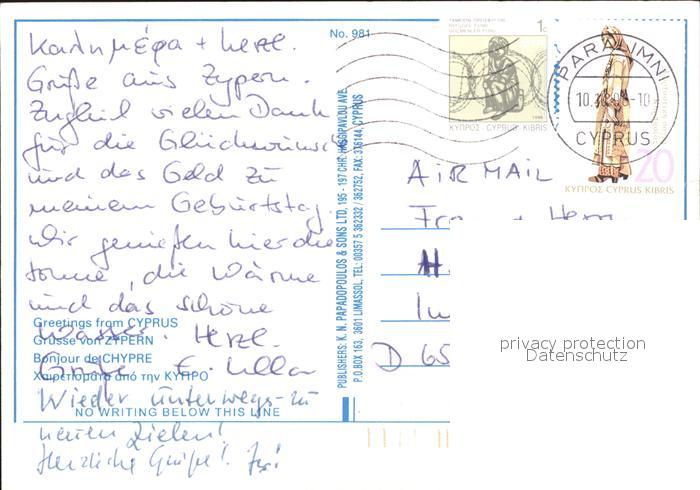 Καλημέρα + herzl.
Grüße aus Zypern.
Zugleich vielen Dank
für die Glückwünsche
und das Geld zu
meinem Geburtstag.
Wir genießen hier die
Sonne, die Wärme
und das schöne
Wasser. Herzl.
Grüße E.
Wieder unterwegs zu
neuen Zielen!
Herzliche Grüße!
Greetings from CYPRUS
Grüsse von ZYPERN
Bonjour de CHYPRE
Χαιρετίσματα από την ΚΥΠΡΟ
NO WRITING BELOW THIS LINE
No. 981
PUBLISHERS: K. N. PAPADOPOULOS & SONS LTD, 195 - 197 CHR. HAGGIPAVLOU AVE.
P.O.BOX 163, 3601 LIMASSOL, TEL: 00357 5 362332 / 362752, FAX: 376144, CYPRUS
1c
ΚΥΠΡΟΣ CYPRUS KIBRIS
PARALIMNI
CYPRUS
20
ΚΥΠΡΟΣ CYPRUS KIBRIS
AIR MAIL
+ Herrn
D 65
privacy protection
Datenschutz